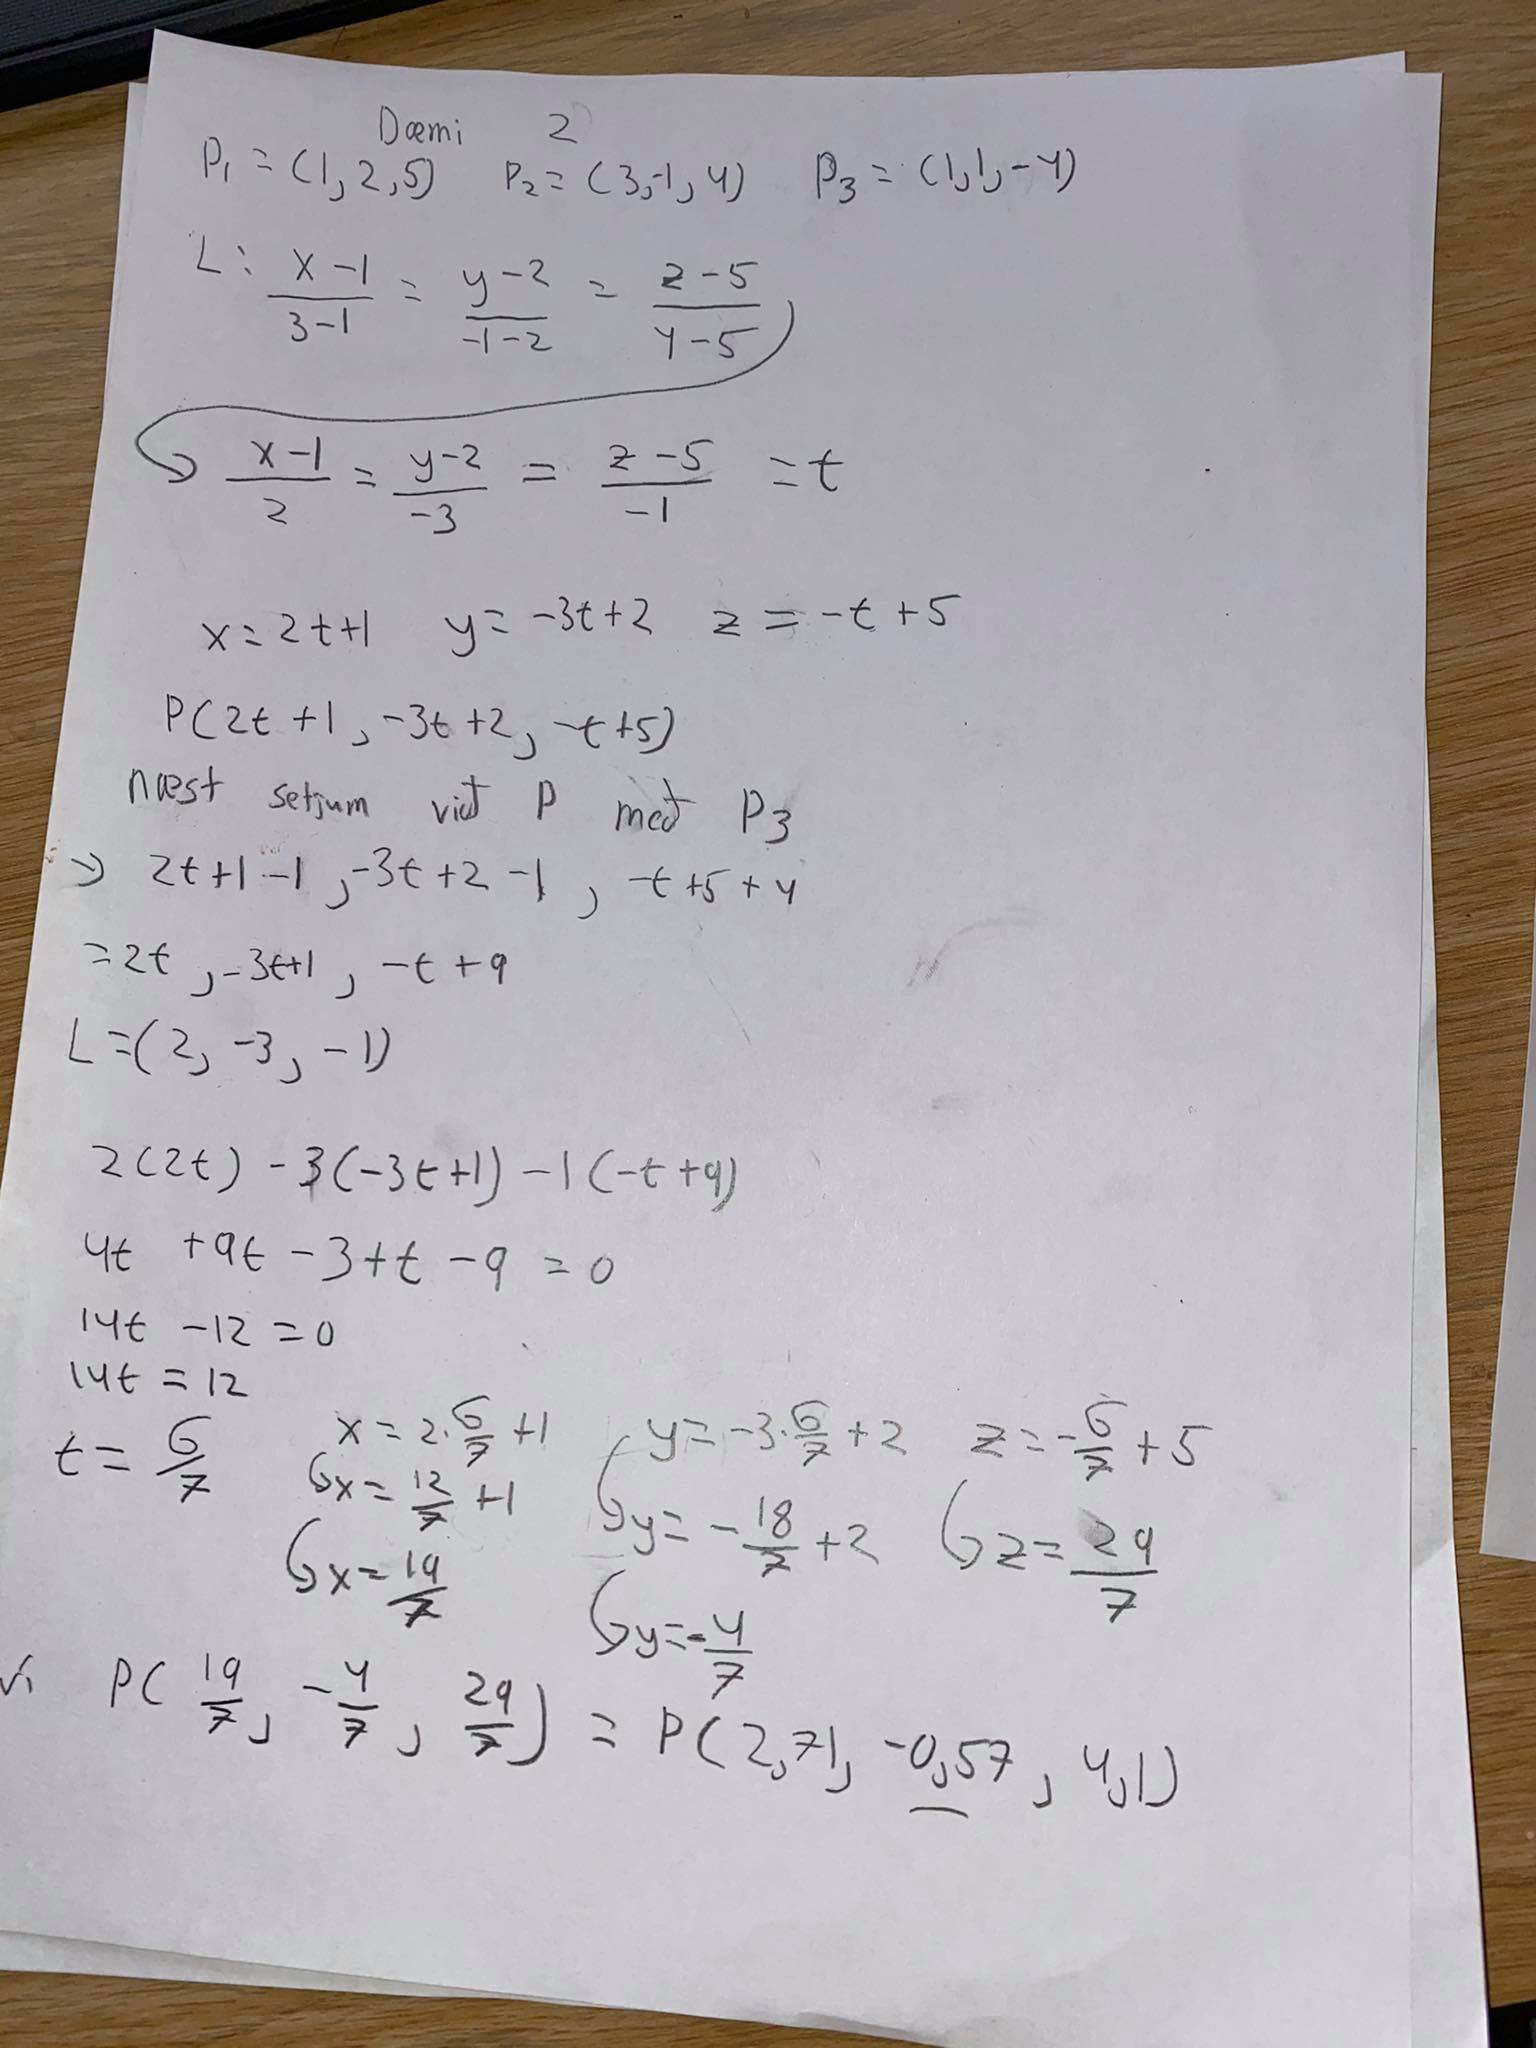 Dæmi 2
P₁ = (1, 2, 5) P₂ = (3, -1, 4) P₃ = (1, 1, -4)
L: (x-1)/(3-1) = (y-2)/(-1-2) = (z-5)/(4-5)
(x-1)/2 = (y-2)/-3 = (z-5)/-1 = t
x = 2t+1 y = -3t+2 z = -t+5
P(2t+1, -3t+2, -t+5)
næst setjum við P með P₃
→ 2t+1-1, -3t+2-1, -t+5+4
= 2t, -3t+1, -t+9
L = (2, -3, -1)
2(2t) - 3(-3t+1) - 1(-t+9)
4t + 9t - 3 + t - 9 = 0
14t - 12 = 0
14t = 12
t = 6/7 x = 2·6/7 + 1 y = -3·6/7 + 2 z = -6/7 + 5
x = 12/7 + 1 y = -18/7 + 2 z = 29/7
x = 19/7 y = -4/7
P(19/7, -4/7, 29/7) = P(2,71, -0,57, 4,1)